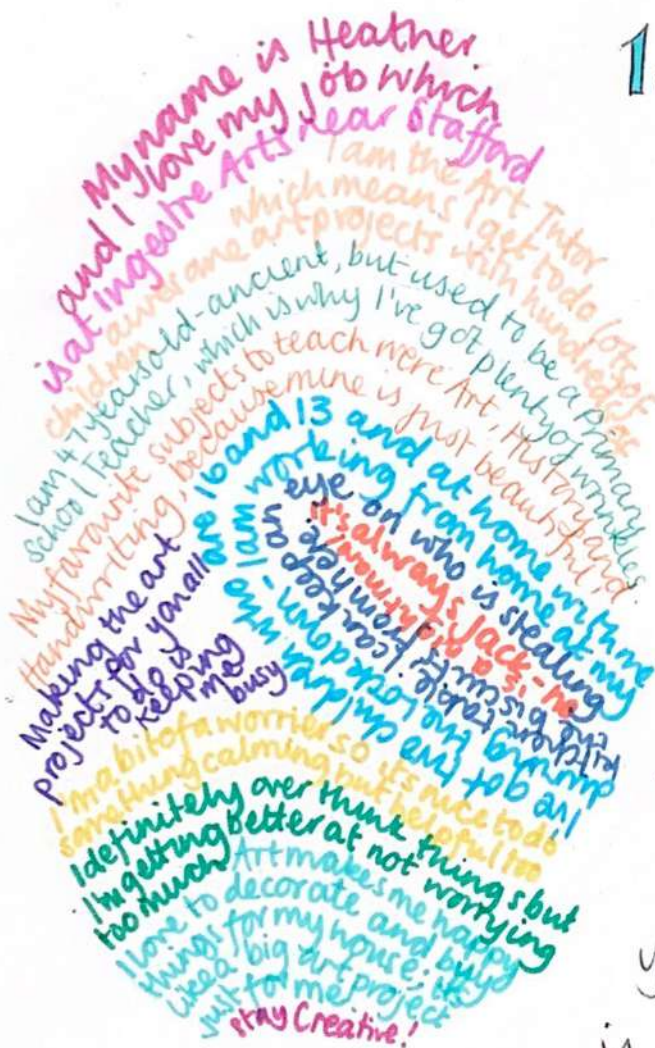 1
My name is Heather
and I love my job which
is at Ingestre Arts near Stafford
I am the Art Tutor
which means I get to do lots of
awesome art projects with hundreds of
children
I am 47 years old - ancient, but used to be a primary
school teacher, which is why I've got plenty of wrinkles
My favourite subjects to teach were Art, History and
Handwriting, because mine is just beautiful!
I've got two children who are 16 and 13 and at home with me
during the lockdown - I am working from home at my
kitchen table. I can keep an eye on who is stealing
the biscuits from here
it's always Jack - he
is a
Making the art
projects for you all
to do is
keeping
me
busy
I'm a bit of a worrier so it's nice to do
something calming but helpful too
I definitely over think things but
I'm getting better at not worrying
too much
Art makes me happy
I love to decorate and buy
things for my house; it's
like a big art project
just for me
stay Creative!